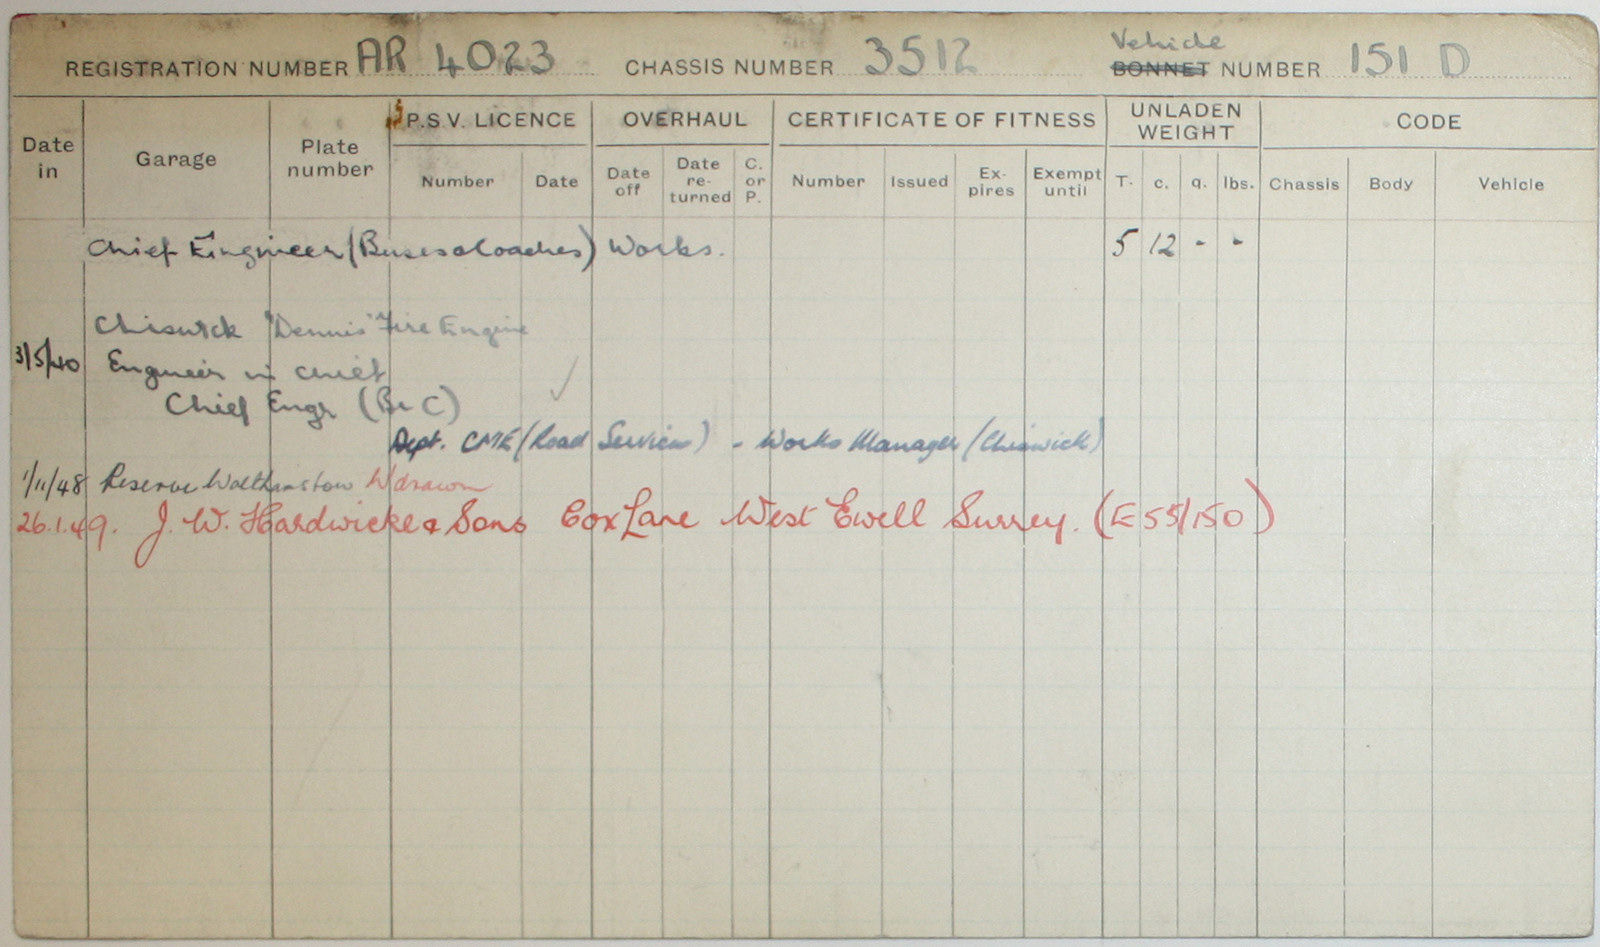 REGISTRATION NUMBER AR 4023 CHASSIS NUMBER 3512 Vehicle BONNET NUMBER 151 D
Date in Garage Plate number P.S.V. LICENCE OVERHAUL CERTIFICATE OF FITNESS UNLADEN WEIGHT CODE
Number Date Date off Date re-turned C. or P. Number Issued Ex-pires Exempt until T. c. q. lbs. Chassis Body Vehicle
Chief Engineer (Buses & Coaches) Works. 5 12 - -
Chiswick "Dennis" Fire Engine
3/5/40 Engineer in chief
Chief Engr (B & C)
Dept. CME (Road Services) - Works Manager (Chiswick)
1/11/48 Reserve Walthamstow W/drawn
26.1.49. J. W. Hardwicke & Sons Cox Lane West Ewell Surrey. (E55/150)